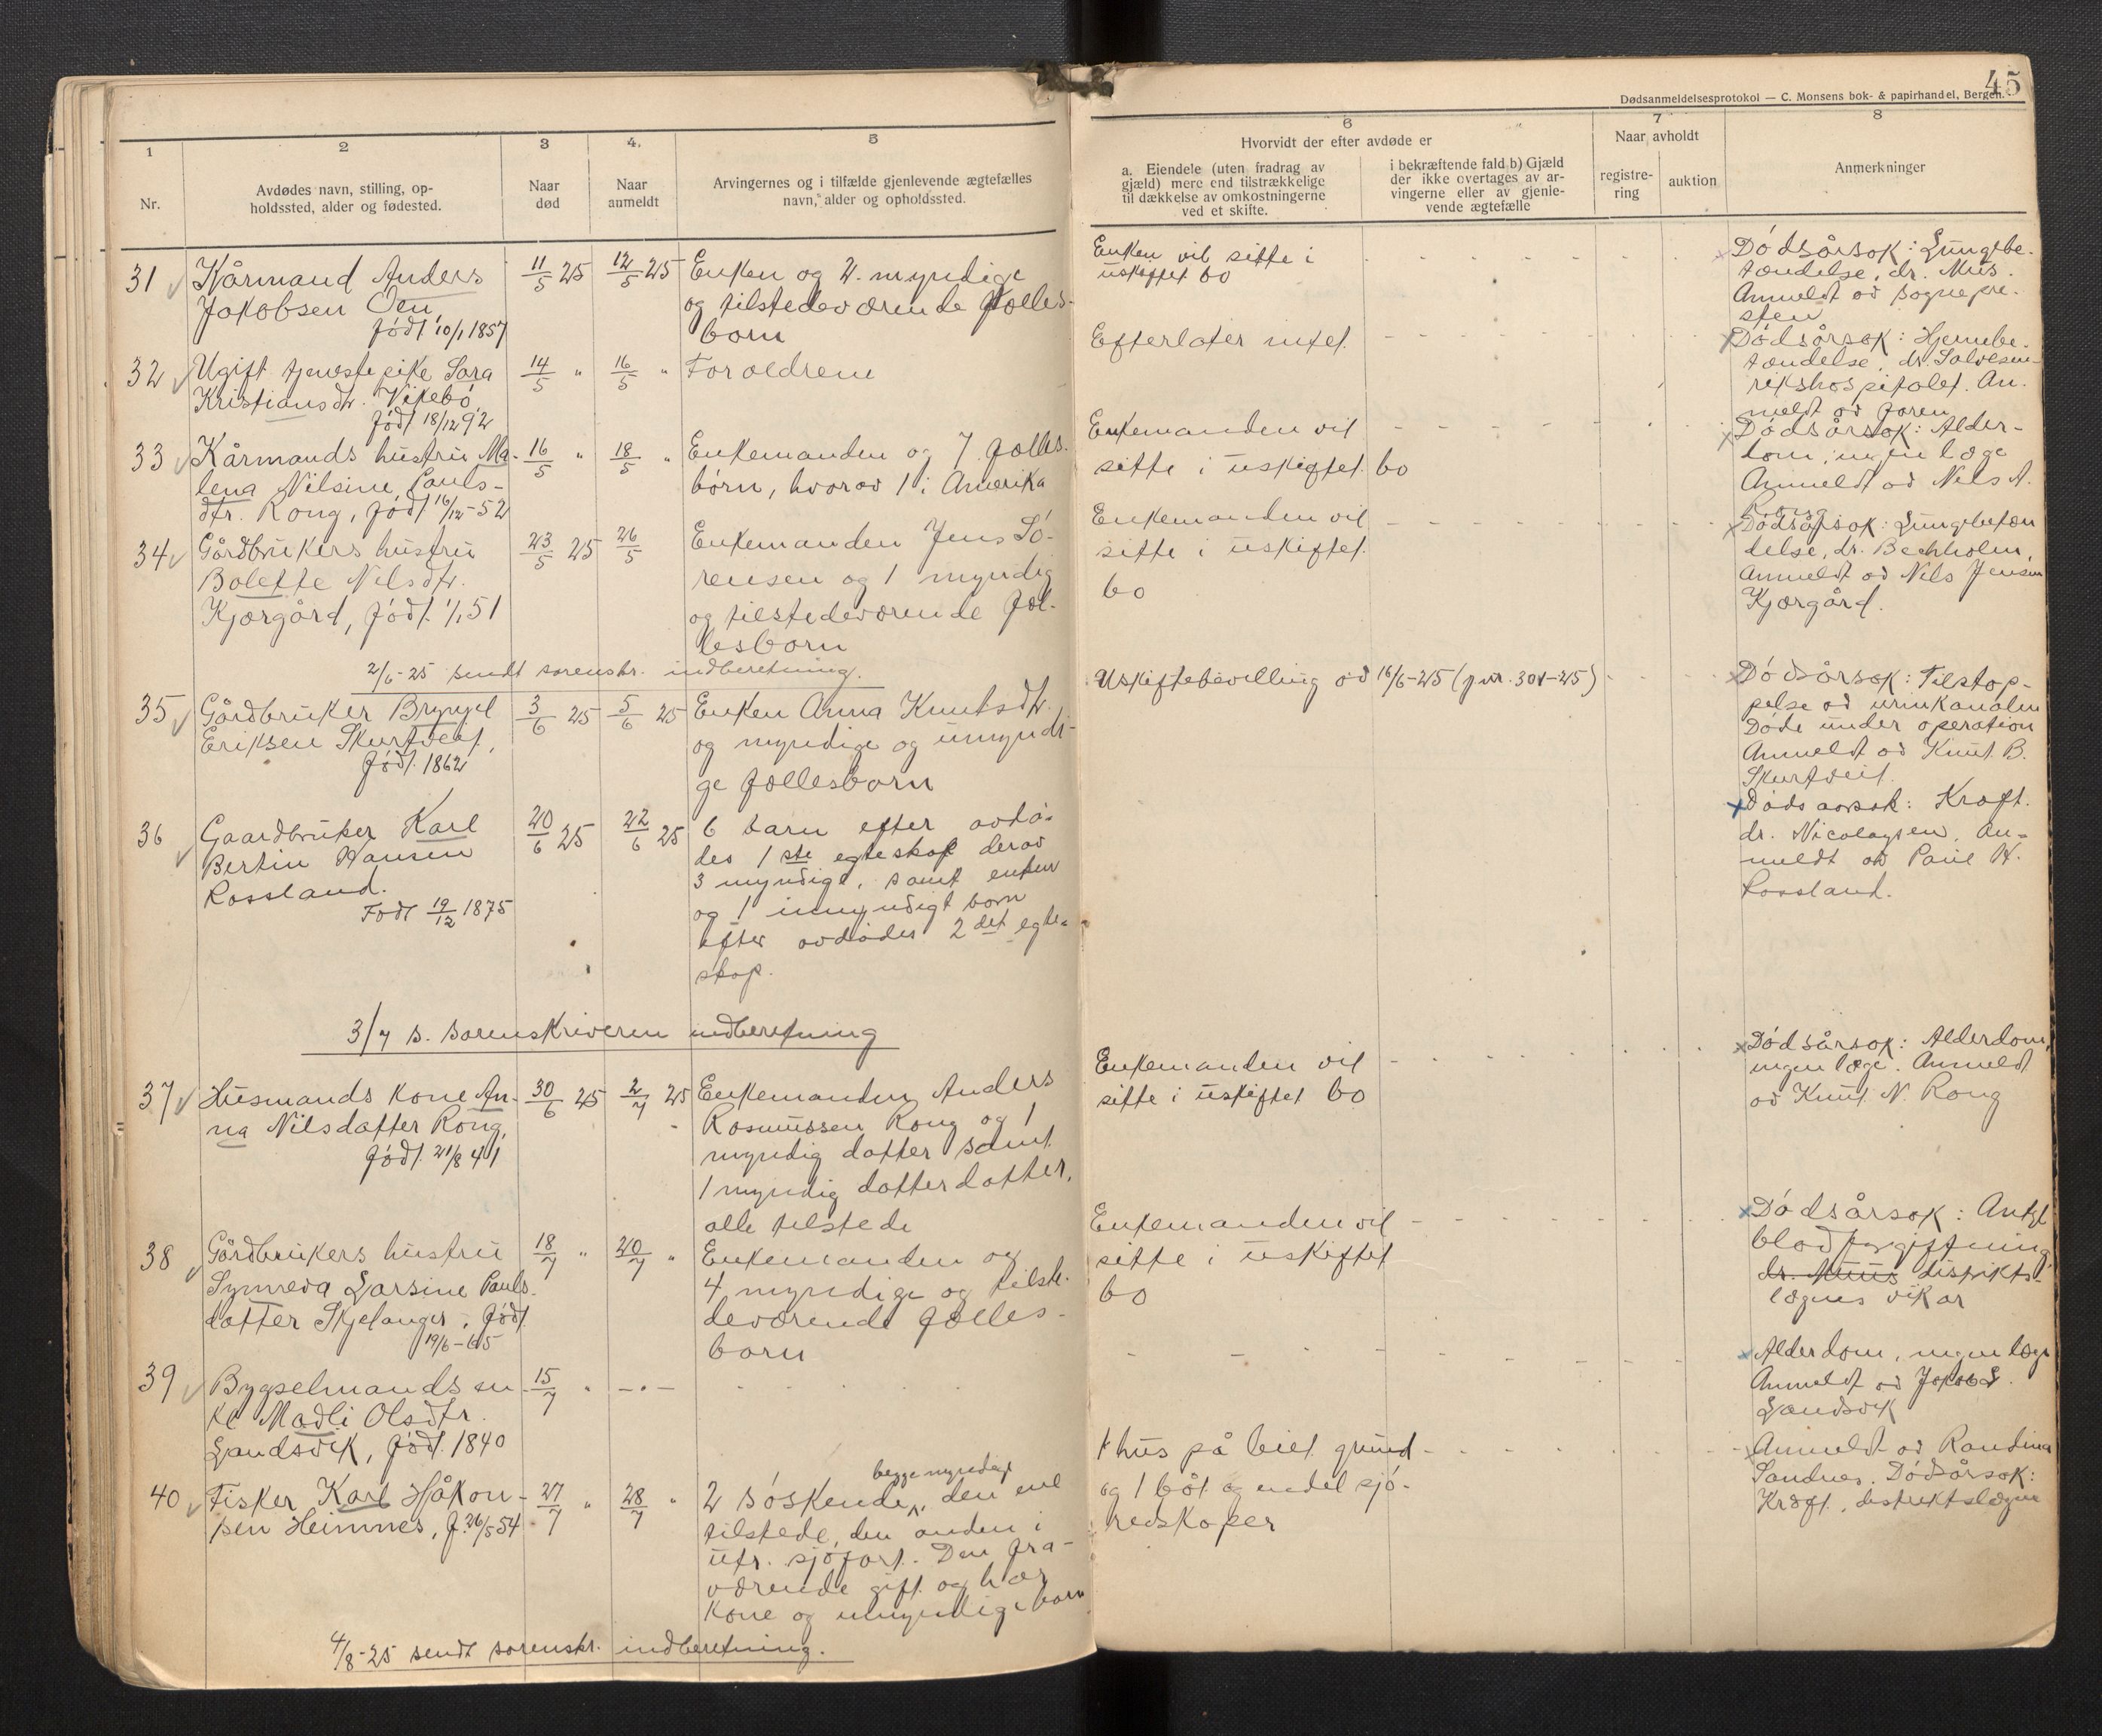 45
Dødsanmeldelsesprotokol — C. Monsens bok- & papirhandel, Bergen.
1
Nr.
2
Avdødes navn, stilling, op-
holdssted, alder og fødested.
3
Naar
død
4.
Naar
anmeldt
5
Arvingernes og i tilfælde gjenlevende ægtefælles
navn, alder og opholdssted.
6
Hvorvidt der efter avdøde er
a. Eiendele (uten fradrag av
gjæld) mere end tilstrækkelige
til dækkelse av omkostningerne
ved et skifte.
i bekræftende fald b) Gjæld
der ikke overtages av ar-
vingerne eller av gjenle-
vende ægtefælle
7
Naar avholdt
registre-
ring
auktion
8
Anmerkninger
31
Kårmand Anders
Jakobsen Øen
født 10/1 1857
11/5 25
12/5 25
Enken og 2 myndige
og tilstedeværende fælles-
barn
Enken vil sitte i
uskiftet bo
Dødsårsak: Lungebe-
tændelse, dr. Mus.
Anmeldt av sognepre-
sten
32
Ugift tjenestepike Sara
Kristiansdtr. Vikebø
født 18/12 92
14/5 "
16/5 "
Forældrene
Efterlater intet.
Dødsårsak: Hjernebe-
tændelse, dr. Salvesen
rikshospitalet. An-
meldt av faren
33
Kårmands hustru Ma-
lena Nilsine Pauls-
dtr. Rong, født 16/12-52
16/5 "
18/5 "
Enkemanden og 7 fælles-
børn, hvorav 1 i Amerika
Enkemanden vil
sitte i uskiftet bo
Dødsårsak: Alder-
dom, ingen læge
Anmeldt av Nils A.
Rong
34
Gårdbrukers hustru
Bolette Nilsdtr.
Kjærgård, født 1/1 51
23/5 25
26/5
Enkemanden Jens Sø-
rensen og 1 myndig
og tilstedeværende fæl-
lesbarn
Enkemanden vil
sitte i uskiftet
bo
Dødsårsak: Lungebetæn
delse, dr. Bechholm,
Anmeldt av Nils Jensen
Kjærgård.
2/6-25 sendt sorenskr. indberetning.
35
Gårdbruker Brynjel
Eriksen Skurtveit,
født 1862
3/6 25
5/6 25
Enken Anna Knutsdtr.
og myndige og umyndi-
ge fællesbarn
Uskiftebevilling av 16/6-25 (jnr. 301-25)
Dødsårsak: Tilstop-
pelse av urinkanalen
Døde under operation
Anmeldt av Knut B.
Skurtveit.
36
Gaardbruker Karl
Bertin Hansen
Rossland.
Født 19/12 1875
20/6 25
22/6 25
6 barn efter avdø-
des 1ste egteskap derav
3 myndige, samt enken
og 1 umyndigt barn
efter avdødes 2det egte-
skap.
Dødsaarsak: Kræft.
dr. Nicolaysen, An-
meldt av Paul H.
Rossland.
3/7 s. sorenskriveren indberetning
37
Husmands kone An-
na Nilsdatter Rong,
født 21/8 41
30/6 25
2/7 25
Enkemanden Anders
Rasmussen Rong og 1
myndig datter samt
1 myndig datterdatter,
alle tilstede
Enkemanden vil
sitte i uskiftet bo
Dødsårsak: Alderdom,
ingen læge. Anmeldt
av Knut N. Rong
38
Gårdbrukers hustru
Synneva Larsine Pauls-
datter Skjelanger, født
19/6-65
18/7 "
20/7 "
Enkemanden og
4 myndige og tilste-
deværende fælles-
barn
Enkemanden vil
sitte i uskiftet
bo
Dødsårsak:
blodforgiftning,
dr. Muus distrikts-
lægens vikar
39
Bygselmands en
ke Madli Olsdtr.
Landsvik, født 1840
15/7 "
- " -
Alderdom, ingen læge
Anmeldt av Jakob L.
Landsvik
40
Fisker Karl Håkon-
sen Heimnes, f. 26/5 54
27/7 "
28/7 "
begge myndige
2 søskende, den ene
tilstede, den anden i
utr. sjøfart. Den fra-
værende gift og har
kone og umyndige barn
1 hus på leiet grund
og 1 båt og endel sjø-
redskaper
Anmeldt av Randina
Sandnes. Dødsårsak:
Kræft, distriktslægen
4/8-25 sendt sorenskr. indberetning.